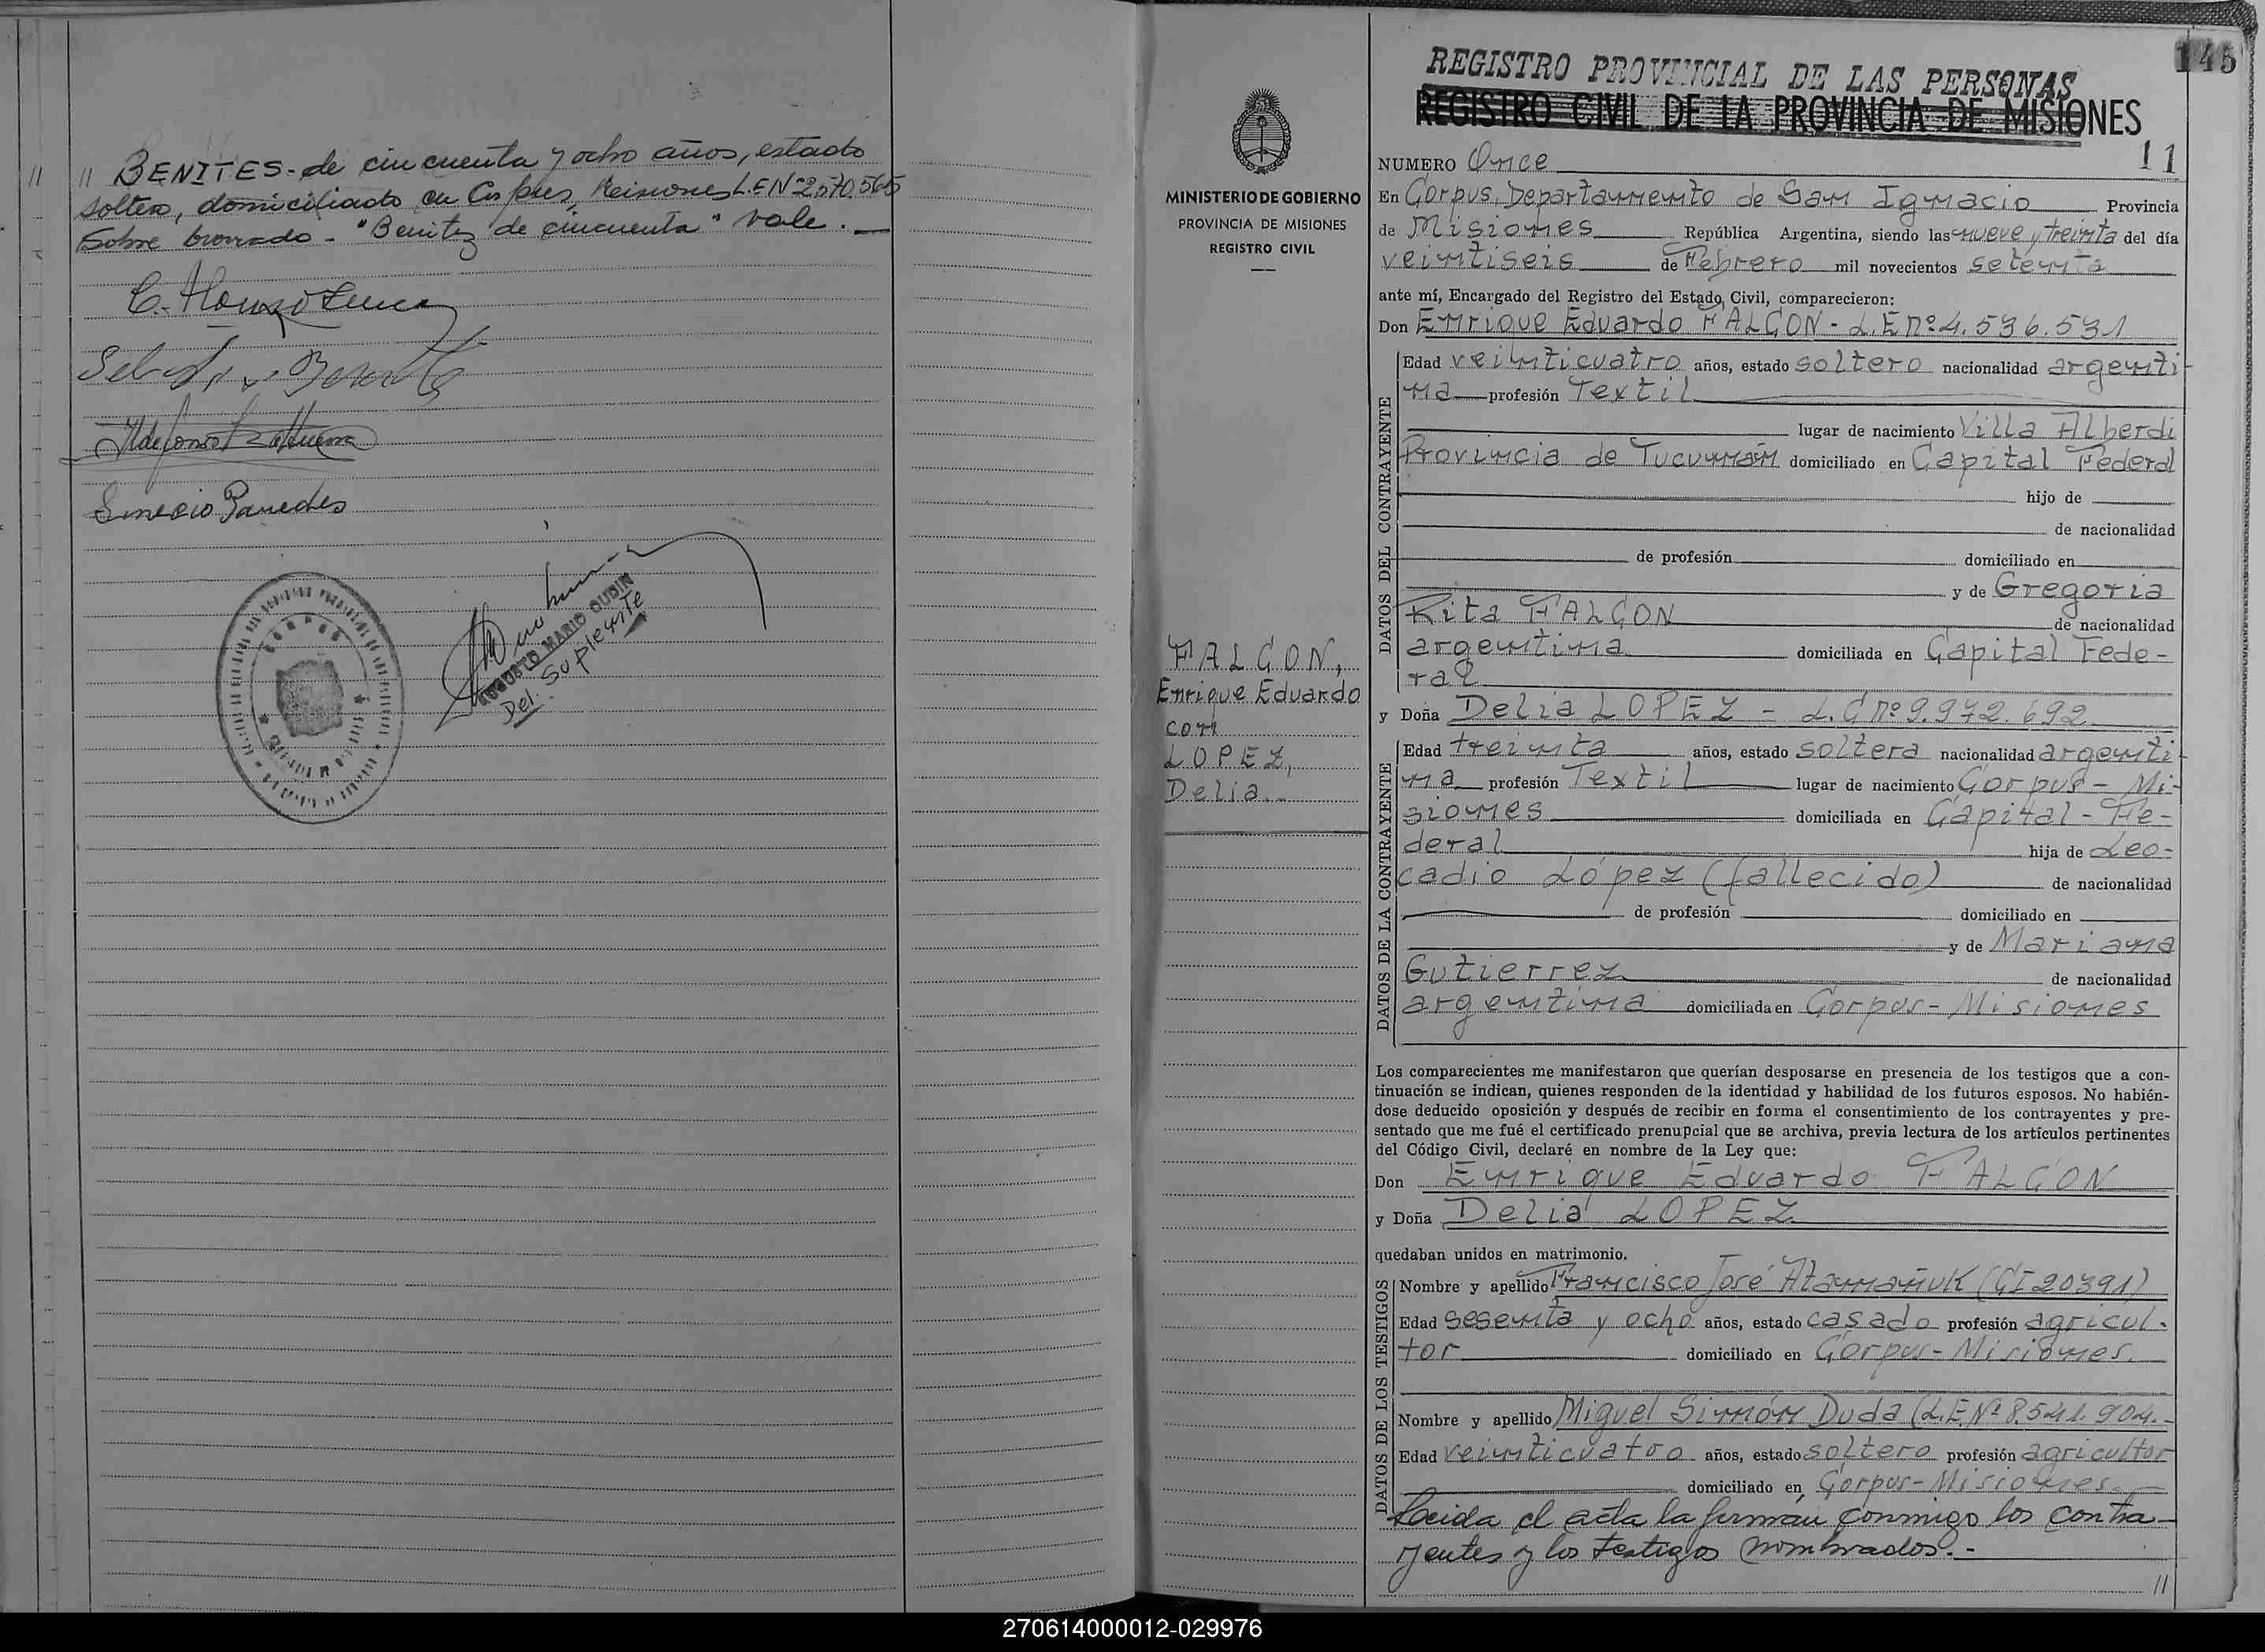 // // BENITES - de cincuenta y ocho años, estado
soltero, domiciliado en Corpus, Misiones L.E.Nº2.570.565
Sobre borrado - "Benitez" de cincuenta" Vale. -
Paredes
AUGUSTO MARIO CUBIN
Del. Suplente
145
REGISTRO PROVINCIAL DE LAS PERSONAS
REGISTRO CIVIL DE LA PROVINCIA DE MISIONES
11
MINISTERIO DE GOBIERNO
PROVINCIA DE MISIONES
REGISTRO CIVIL
FALCON,
Enrique Eduardo
con
LOPEZ,
Delia.-
NUMERO Once
En Corpus, Departamento de San Ignacio Provincia
de Misiones República Argentina, siendo las nueve y treinta del día
veintiseis de Febrero mil novecientos setenta
ante mí, Encargado del Registro del Estado Civil, comparecieron:
Don Enrique Eduardo FALCON - L.E nº 4.536.531
DATOS DEL CONTRAYENTE
Edad veinticuatro años, estado soltero nacionalidad argenti-
na profesión Textil
lugar de nacimiento Villa Alberdi
Provincia de Tucumán domiciliado en Capital Federal
hijo de
de nacionalidad
de profesión domiciliado en
y de Gregoria
Rita FALCON de nacionalidad
argentina domiciliada en Capital Fede-
ral
y Doña Delia LOPEZ - L.C nº 9.972.692
DATOS DE LA CONTRAYENTE
Edad treinta años, estado soltera nacionalidad argenti-
na profesión Textil lugar de nacimiento Corpus - Mi-
siones domiciliada en Capital - Fe-
deral hija de Leo-
cadio López (fallecido) de nacionalidad
de profesión domiciliado en
y de Mariana
Gutierrez de nacionalidad
argentina domiciliada en Corpus - Misiones
Los comparecientes me manifestaron que querían desposarse en presencia de los testigos que a con-
tinuación se indican, quienes responden de la identidad y habilidad de los futuros esposos. No habién-
dose deducido oposición y después de recibir en forma el consentimiento de los contrayentes y pre-
sentado que me fué el certificado prenupcial que se archiva, previa lectura de los artículos pertinentes
del Código Civil, declaré en nombre de la Ley que:
Don Enrique Eduardo FALCON
y Doña Delia LOPEZ
quedaban unidos en matrimonio.
DATOS DE LOS TESTIGOS
Nombre y apellido Francisco José Atamañuk (CI 20391)
Edad sesenta y ocho años, estado casado profesión agricul-
tor domiciliado en Corpus - Misiones.
Nombre y apellido Miguel Simón Duda (L.E.Nº 8.541.904.-
Edad veinticuatro años, estado soltero profesión agricultor
domiciliado en Corpus - Misiones.
Leida el acta la firman conmigo los contra-
yentes y los testigos nombrados. -
//
270614000012-029976